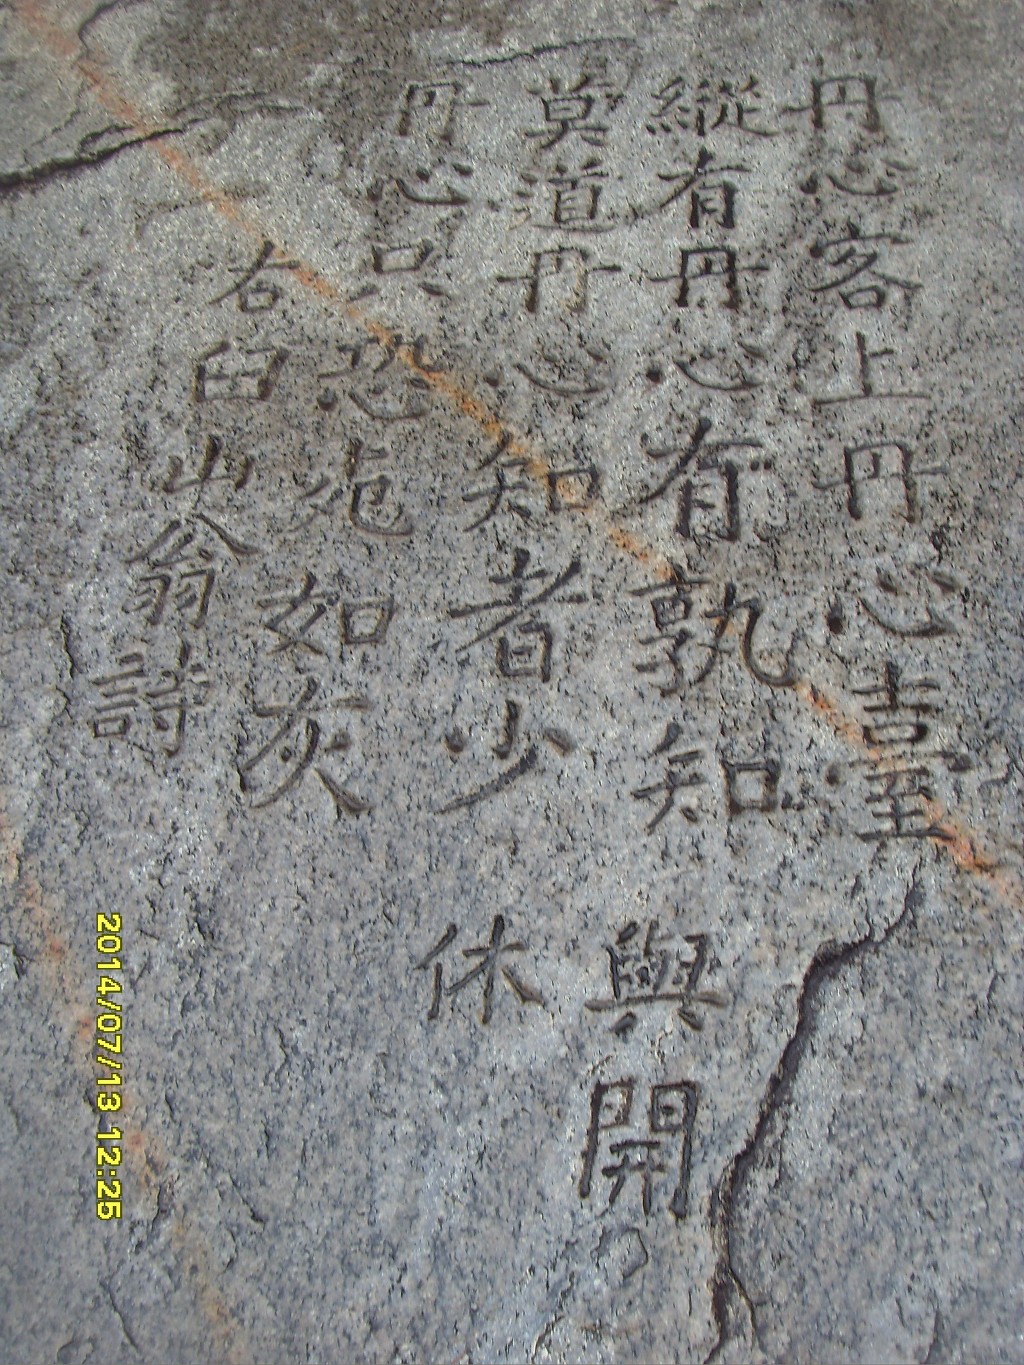 丹心客上丹心臺
縱有丹心有孰知
莫道丹心知者少
丹心只恐死如灰
右臼山翁詩
與開
休
2014/07/13 12:25